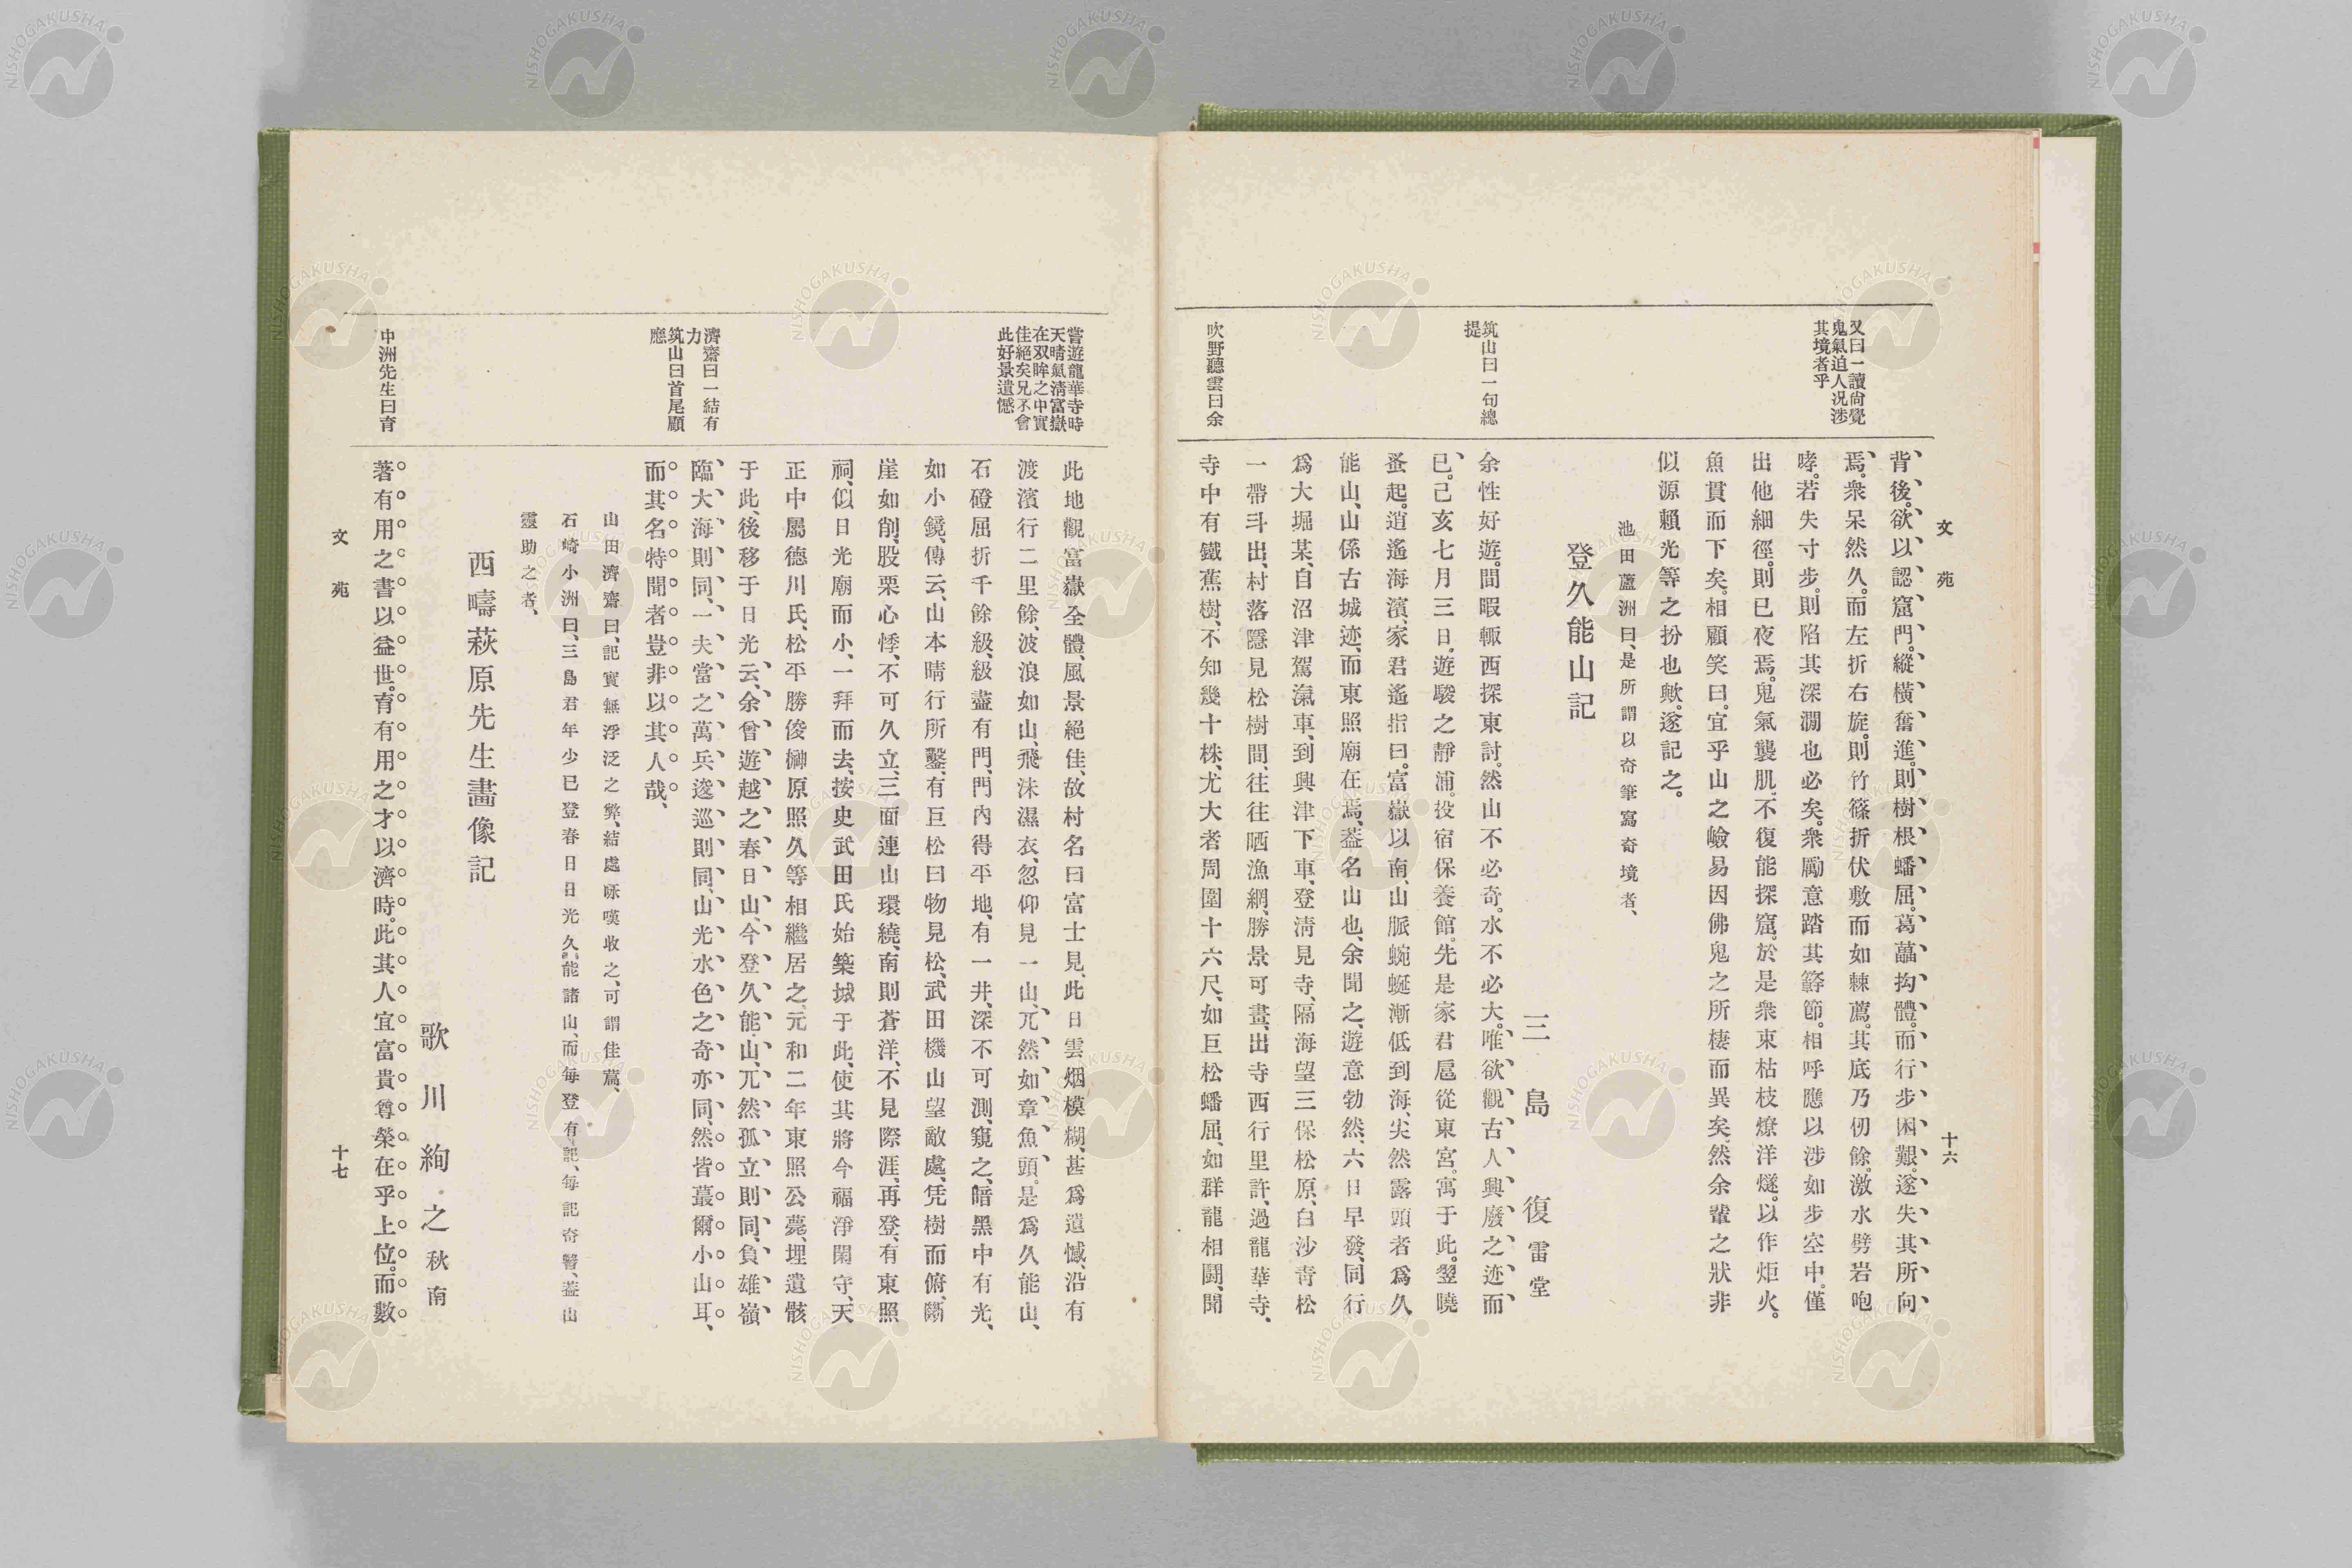 文苑
十六
又曰一讀尙覺
鬼氣迫人况涉
其境者乎
背後、欲以認窟門。縱橫奮進。則樹根蟠屈。葛藟拘體。而行步困艱。遂失其所向
焉。衆呆然久。而左折右旋。則竹篠折伏敷而如棘薦。其底乃仞餘。激水劈岩咆
哮。若失寸步。則陷其深澗也必矣。衆勵意踏其簳節。相呼應以涉如步空中。僅
出他細徑。則已夜焉。鬼氣襲肌、不復能探窟。於是衆束枯枝燎洋燧。以作炬火。
魚貫而下矣。相顧笑曰。宜乎山之嶮易因佛鬼之所棲而異矣。然余輩之狀非
似源賴光等之扮也歟。遂記之。
池田蘆洲曰、是所謂以奇筆寫奇境者、
登久能山記
三島復雷堂
筑山曰一句總
提
余性好遊。間暇輙西探東討。然山不必奇。水不必大。唯欲觀古人興廢之迹而
已。己亥七月三日。遊駿之靜浦。投宿保養館。先是家君扈從東宮。寓于此。翌曉
蚤起。逍遙海濱、家君遙指曰。富嶽以南、山脈蜿蜒漸低到海、尖然露頭者爲久
能山、山係古城迹、而東照廟在焉、葢名山也、余聞之、遊意勃然、六日早發、同行
爲大堀某、自沼津駕滊車、到興津下車、登淸見寺、隔海望三保松原、白沙靑松
一帶斗出、村落隱見松樹間、往往晒漁網、勝景可畫、出寺西行里許、過龍華寺、
吹野聽雲曰余
寺中有鐵蕉樹、不知幾十株、尤大者周圍十六尺、如巨松蟠屈、如群龍相鬪、聞
嘗遊龍華寺時
天晴氣淸富嶽
在双眸之中實
佳絕矣兄不會
此好景遺憾
此地觀富嶽全體、風景絕佳、故村名曰富士見、此日雲烟模糊、甚爲遺憾、沿有
渡濱行二里餘、波浪如山、飛沫濕衣、忽仰見一山、兀然如章魚頭。是爲久能山、
石磴屈折千餘級、級盡有門、門內得平地、有一井、深不可測、窺之、暗黑中有光、
如小鏡、傳云、山本晴行所鑿、有巨松曰物見松、武田機山望敵處、凭樹而俯、斷
崖如削、股栗心悸、不可久立、三面連山環繞、南則蒼洋、不見際涯、再登、有東照
祠、似日光廟而小、一拜而去、按史武田氏始築城于此、使其將今福淨閑守、天
正中屬德川氏、松平勝俊榊原照久等相繼居之、元和二年東照公薨、埋遺骸
于此、後移于日光云、余曾遊越之春日山、今登久能山、兀然孤立則同、負雄嶺
濟齋曰一結有
力
筑山曰首尾顧
應
臨大海則同、一夫當之萬兵逡巡則同、山光水色之奇亦同、然皆蕞爾小山耳、
而其名特聞者豈非以其人哉、
山田濟齋曰、記實無浮泛之弊、結處咏嘆收之、可謂佳蒿、
石崎小洲曰、三島君年少已登春日日光久能諸山、而每登有記、每記奇警、葢山
靈助之者、
西疇萩原先生畵像記
歌川絢之秋南
中洲先生曰育
著有用之書以益世。育有用之才以濟時。此其人宜富貴尊榮在乎上位。而數
文苑
十七